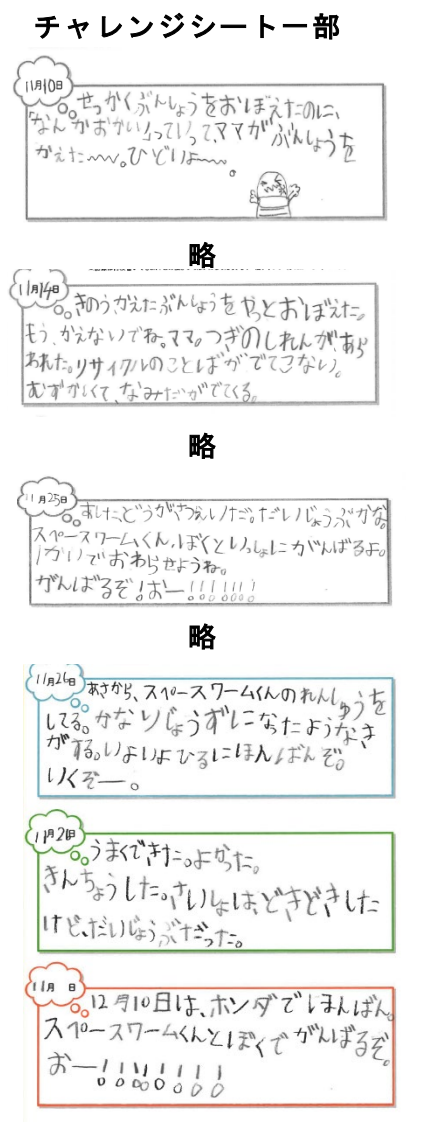 チャレンジシート一部
11月10日
せっかくぶんしょうをおぼえたのに、
なんかおかしいっていって、ママがぶんしょうを
かえた〜〜。ひどいよ〜〜。
略
11月14日
きのうかえたぶんしょうをやっとおぼえた。
もう、かえないでね。ママ。つぎのしれんが、あら
われた。リサイクルのことばがでてこない。
むずかしくて、なみだがでてくる。
略
11月25日
あした、どうがさつえいだ。だいじょうぶかな。
スペースワームくん、ぼくといっしょにがんばるよ。
1かいでおわらせようね。
がんばるぞ!おー!!!!!!!
略
11月26日
あさから、スペースワームくんのれんしゅうを
してる。かなりじょうずになったようなき
がする。いよいよひるにほんばんぞ。
いくぞー。
11月26日
うまくできた。よかった。
きんちょうした。さいしょは、どきどきした
けど、だいじょうぶだった。
11月 日
12月10日は、ホンダでほんばん。
スペースワームくんとぼくでがんばるぞ。
おー!!!!!!!